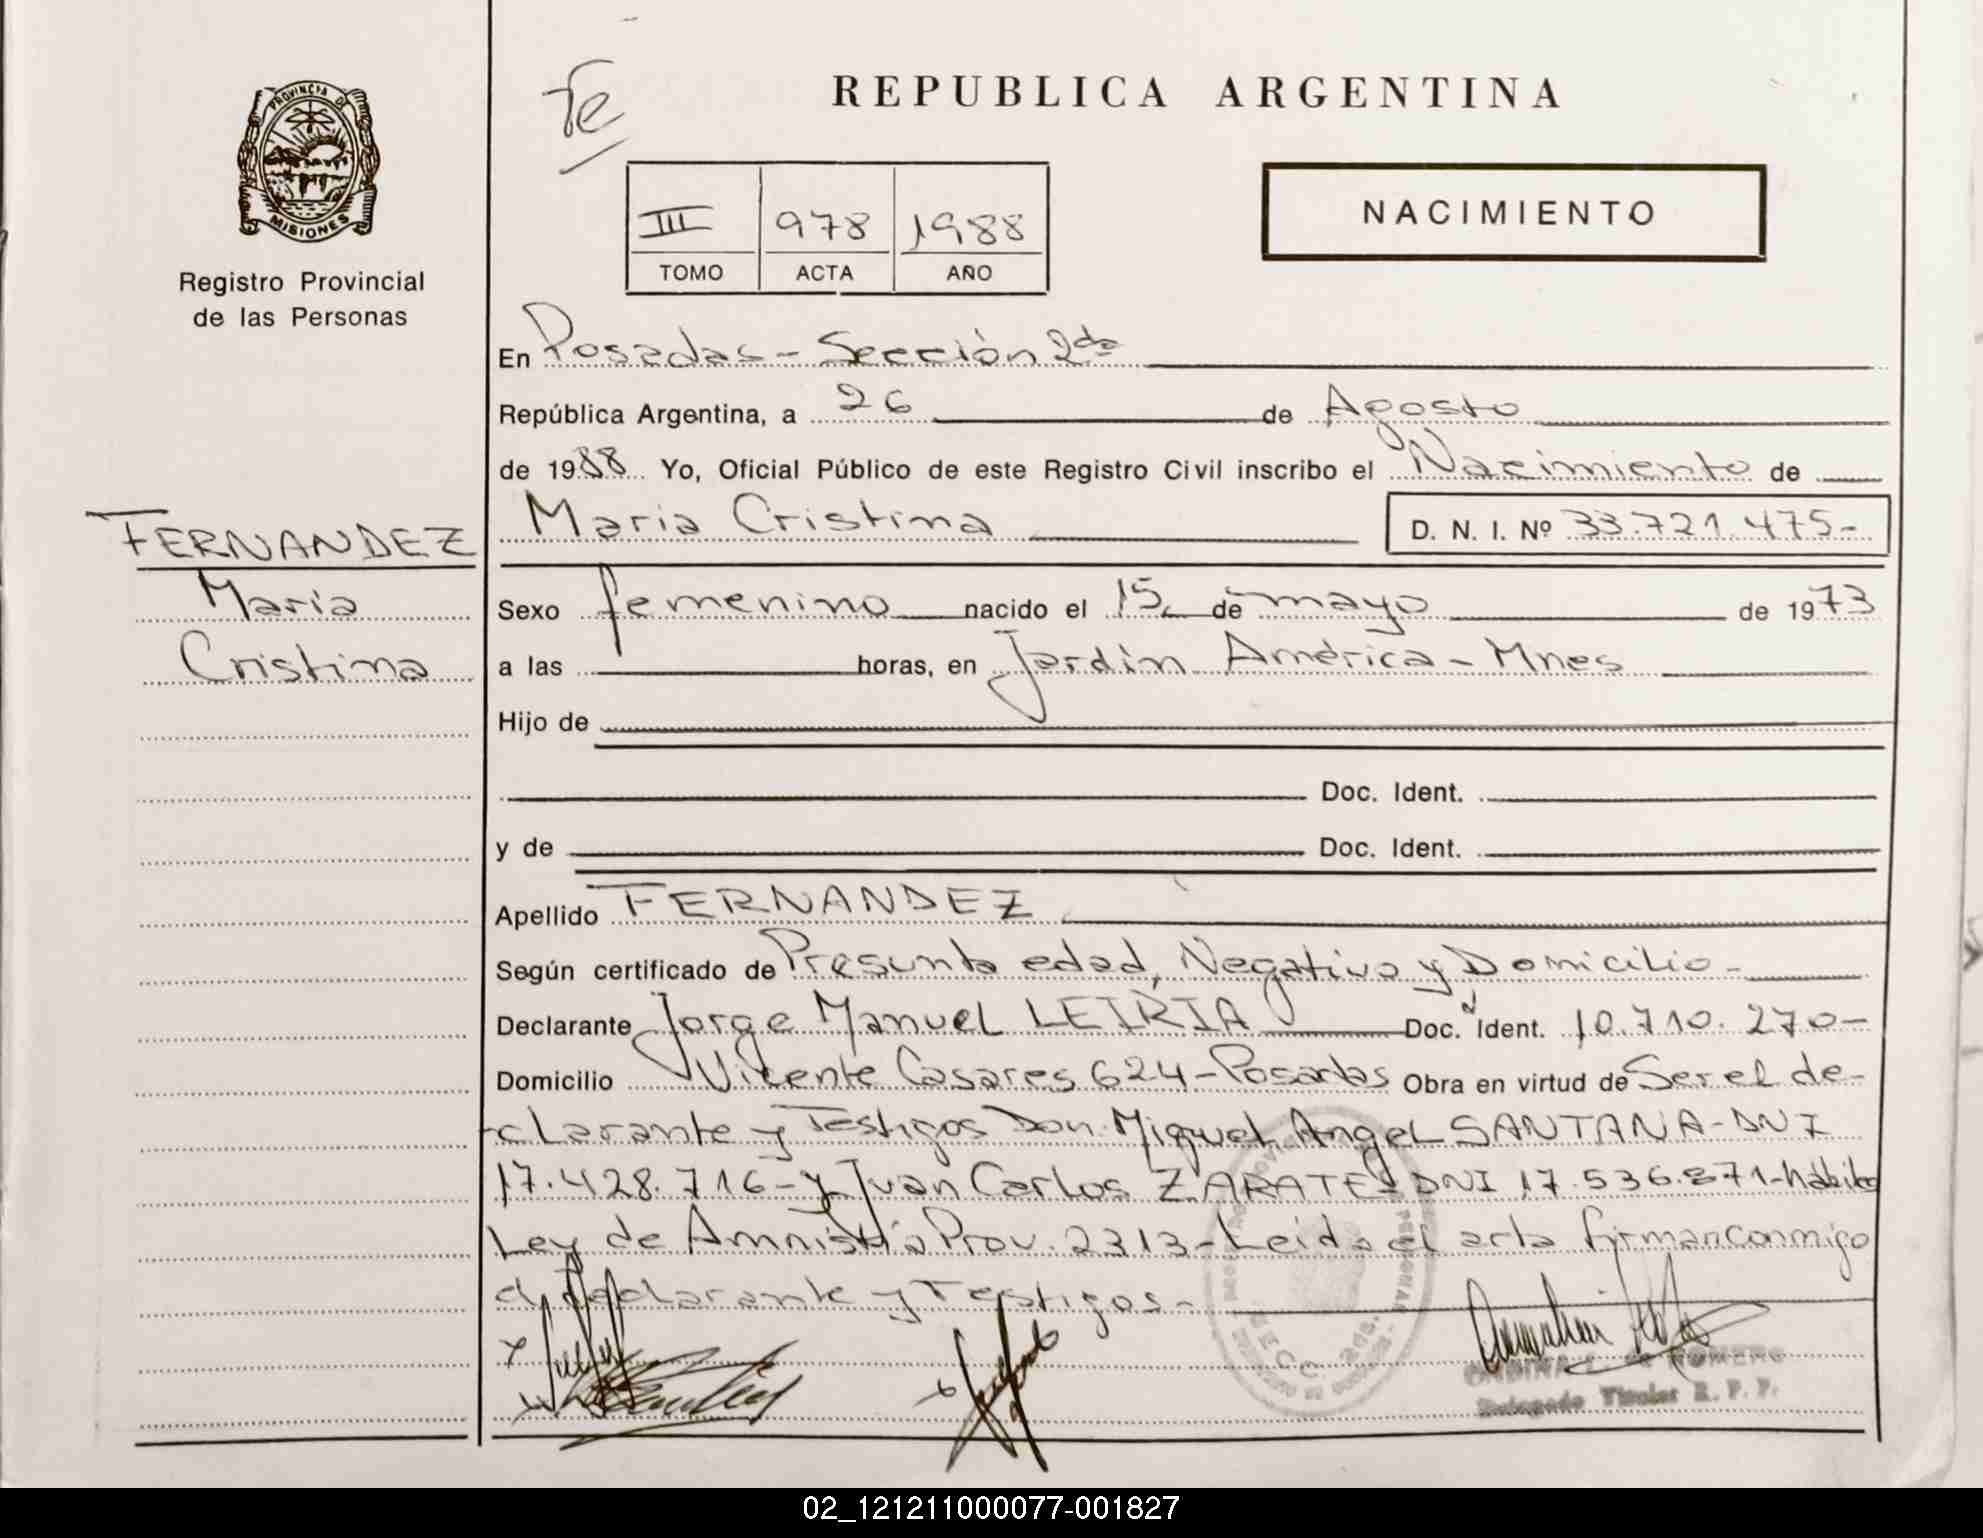 PROVINCIA DE
MISIONES
Registro Provincial
de las Personas
FERNANDEZ
María
Cristina
Te
REPUBLICA ARGENTINA
III 978 1988
TOMO ACTA AÑO
NACIMIENTO
En Posadas - Sección 2da
República Argentina, a 26 de Agosto
de 1988 Yo, Oficial Público de este Registro Civil inscribo el Nacimiento de
Maria Cristina D. N. I. Nº 33.721.475-
Sexo femenino nacido el 15 de mayo de 1973
a las horas, en Jardín América - Mnes
Hijo de
Doc. Ident.
y de Doc. Ident.
Apellido FERNANDEZ
Según certificado de Presunta edad, Negativo y Domicilio-
Declarante Jorge Manuel LEIRIA Doc. Ident. 10.710.270-
Domicilio Vicente Casares 624-Posadas Obra en virtud de Ser el de-
clarante y Testigos Don Miguel Angel SANTANA-DNI
17.428.716-y Juan Carlos ZARATE DNI 17.536.871-hábiles
Ley de Amnistía Prov. 2313-Leida el acta firman conmigo
el declarante y Testigos-
SECC. 2da.
ROMERO
Delegado Titular R. P. P.
02_121211000077-001827